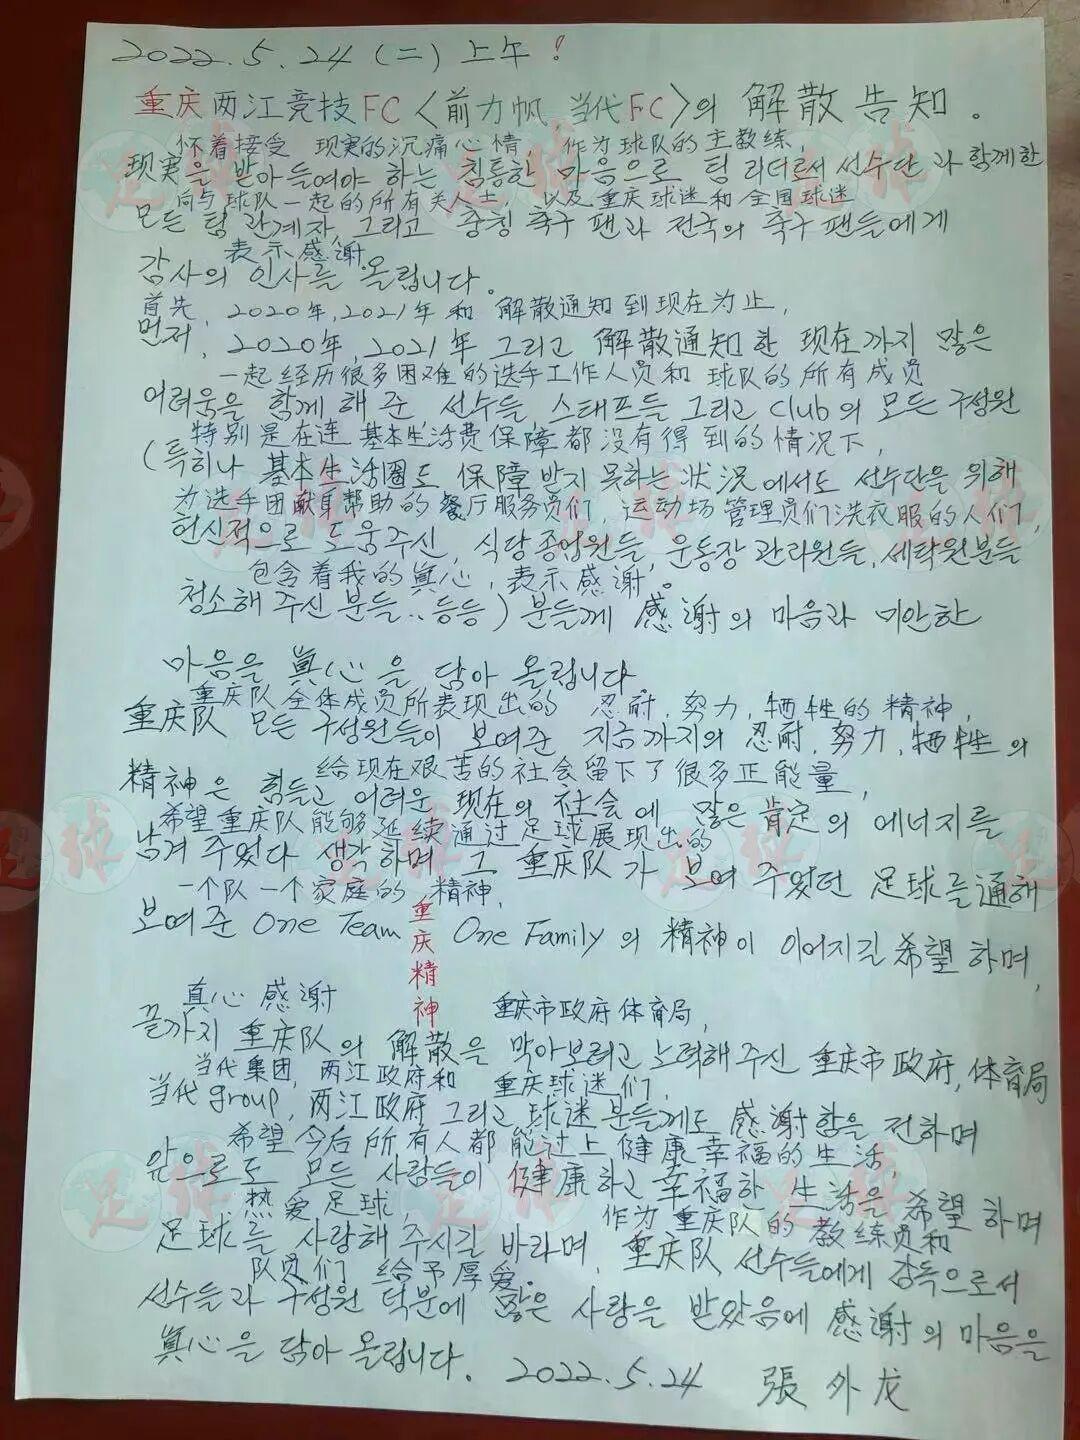 2022.5.24(二)上午!
重庆两江竞技FC〈前力帆 当代FC〉의 解散告知。
怀着接受 现实的沉痛心情, 作为球队的主教练,
现实을 받아들여야 하는 침통한 마음으로 팀 리더로서 선수단과 함께한
向与球队一起的所有关人士, 以及重庆球迷和全国球迷
모든 팀 관계자, 그리고 중칭 축구 팬과 전국의 축구 팬들에게
表示感谢
감사의 인사를 올립니다。
首先, 2020年,2021年 和 解散通知到现在为止,
먼저, 2020年, 2021年 그리고 解散通知한 现在까지 많은
一起经历很多困难的选手工作人员和 球队的所有成员
어려움을 함께 해 준 선수들 스태프들 그리고 Club의 모든 구성원
特别是在连 基本生活费保障都没有得到的情况下,
(특히나 基本生活圈도 保障받지 못하는 状况에서도 선수단을 위해
为选手团献身帮助的餐厅服务员们, 运动场管理员们洗衣服的人们,
헌신적으로 도움주신, 식당종업원들, 운동장관리원들, 세탁원분들
包含着我的真心, 表示感谢。
청소해 주신 분들..等등) 분들께 感谢의 마음과 미안한
마음을 眞心을 담아 올립니다
重庆队全体成员所表现出的 忍耐, 努力, 牺牲的精神,
重庆队 모든 구성원들이 보여준 지금까지의 忍耐, 努力, 牺牲의
给现在艰苦的社会留下了很多正能量,
精神은 힘들고 어려운 现在의 社会에 많은 肯定의 에너지를
希望重庆队能够延续通过足球展现出的
남겨 주었다 생각하며, 그 重庆队가 보여 주었던 足球를 通해
一个队一个家庭的 精神,
보여준 One Team One Family의 精神이 이어지길 希望하며,
重庆精神
真心感谢 重庆市政府体育局,
끝까지 重庆队의 解散을 막아보려고 노력해주신 重庆市政府, 体育局
当代集团, 两江政府和 重庆球迷们,
当代group, 两江政府 그리고 球迷 분들께도 感谢함을 전하며
希望今后所有人都能过上健康幸福的生活,
앞으로도 모든 사람들이 健康하고 幸福한 生活을 希望하며
热爱足球, 作为重庆队的教练员和
足球를 사랑해 주시길 바라며, 重庆队 선수들에게 감독으로서
队员们 给予厚爱。
선수들과 구성원 덕분에 많은 사랑을 받았음에 感谢의 마음을
眞心을 담아 올립니다. 2022.5.24 張外龙